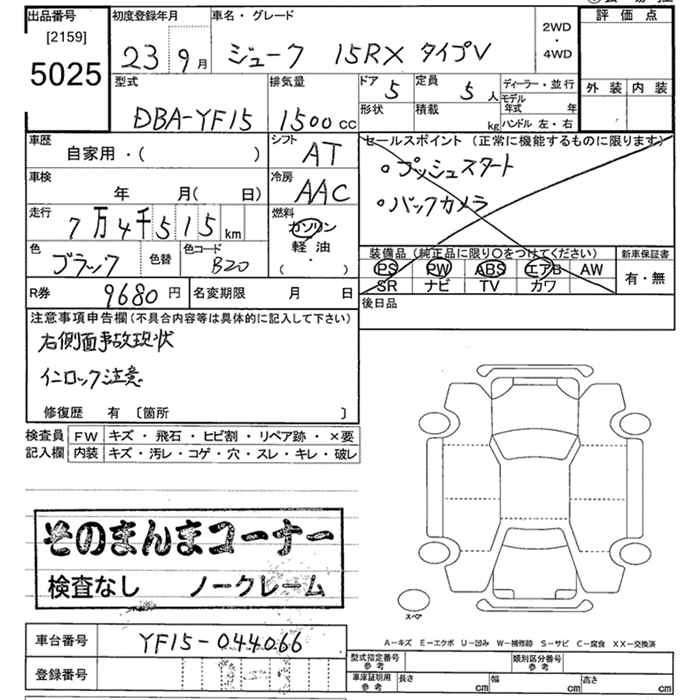 出品番号 初度登録年月 車名・グレード 2WD・4WD 評価点
[2159]
5025 23 9月 ジューク 15RX タイプV
型式 排気量 ドア 5 定員 5人 ディーラー・並行 外装 内装
DBA-YF15 1500cc 形状 積載 kg モデル年式 年
ハンドル 左・右
車歴 自家用・( ) シフト AT セールスポイント (正常に機能するものに限ります)
。プッシュスタート
車検 年 月(日) 冷房 AAC 。バックカメラ
走行 7万4千515km 燃料 ガソリン
軽油・( )
色 ブラック 色替 色コード B20 装備品(純正品に限り〇をつけてください) 新車保証書
PS PW ABS エアB AW 有・無
SR ナビ TV カワ
R券 9680円 名変期限 月 日 後日品
注意事項申告欄(不具合内容等は具体的に記入して下さい)
右側面事故現状
インロック注意
修復歴 有 〔箇所 〕
検査員 FW キズ・飛石・ヒビ割・リペア跡・×要
記入欄 内装 キズ・汚レ・コゲ・穴・スレ・キレ・破レ
そのまんまコーナー
検査なし ノークレーム
スペア
車台番号 YF15-044066
A-キズ E-エクボ U-凹み W-補修跡 S-サビ C-腐食 XX-交換済
登録番号
型式指定番号 参考 類別区分番号 参考
車庫証明用 参考 長さ cm 幅 cm 高さ cm